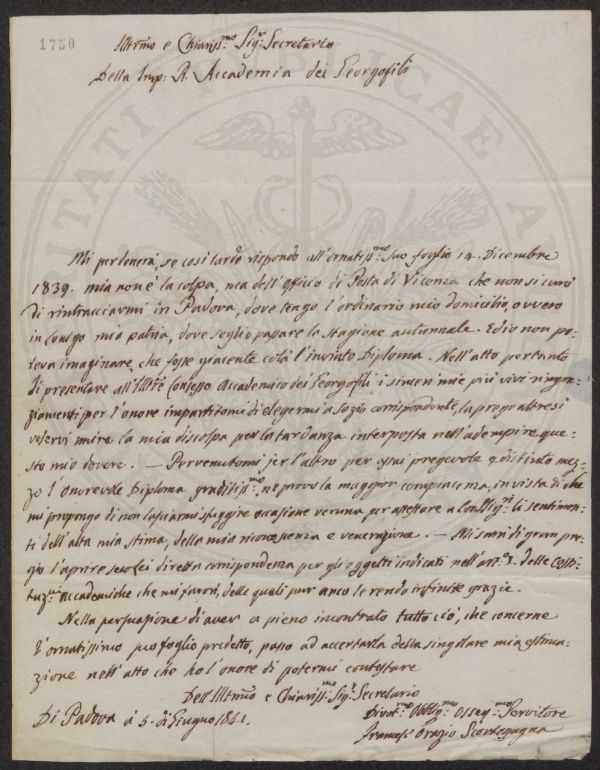 1750
Illtmo e Chiariss.mo Sig.r Secretario
Della Imp: R. Accademia dei Georgofili
Mi perdonerà, se così tardo rispondo all'ornatiss.mo suo foglio 14. Dicembre
1839. mia non è la colpa, ma dell'Officio di Posta di Vicenza che non si curò
di rintracciarmi in Padova, dove tengo l'ordinario mio domicilio, ovvero
in Lonigo mia patria, dove soglio passare la stagione autunnale. Ed io non po-
teva imaginare, che fosse giacente colà l'inviato Diploma. Nell'atto pertanto
di presentare all' Consesso Accademico dei Georgofili i sinceri miei più vivi ringra-
ziamenti per l'onore impartitomi di elegermi a Sozio corrispondente, la prego altresì
volervi unire la mia discolpa per la tardanza interposta nell'adempire que-
sto mio dovere. — Pervenutomi jer l'altro per assai pregevole e distinto mez-
zo l'onorevole Diploma graditiss.mo, ne provo la maggior compiacenza, in vista di che
mi propongo di non lasciarmi sfuggire occasione veruna per attestare a i sentimen-
ti dell'alta mia stima, della mia riconoscenza e venerazione. — Mi sarà di gran pre-
gio l'aprire seco Lei diretta corrispondenza per gli oggetti indicati nell'art.o delle Costi-
tuz.ni Accademiche che mi favorì, delle quali pur anco le rendo infinite grazie.
Nella persuasione di aver a pieno incontrato tutto ciò, che concerne
l'ornatissimo suo foglio predetto, passo ad accertarla della singolare mia estima-
zione nell'atto che ho l'onore di potermi contestare
Dell'Illtmo e Chiariss.mo Sig.r Secretario
Di Padova à 5. di Giugno 1841.
Divot.mo Obblig.mo Osseq.mo Servitore
Francesco Orazio Scortegagna